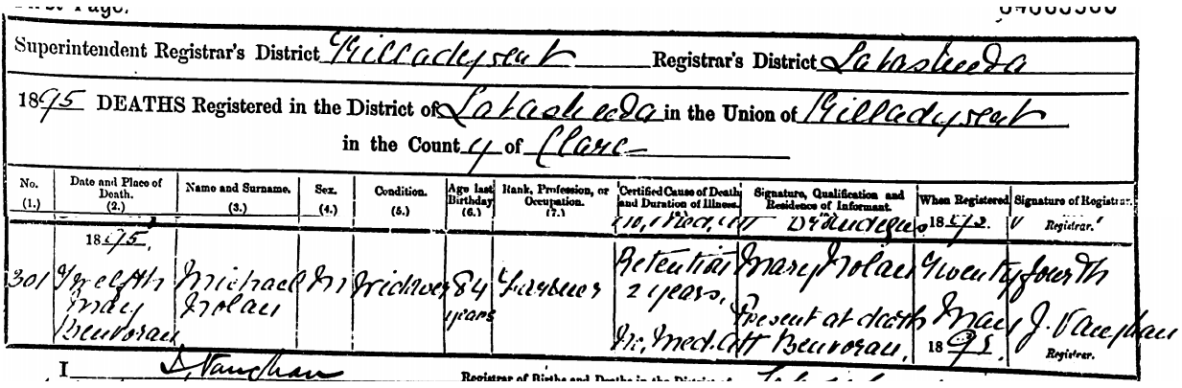 First Page.
Superintendent Registrar's District Killadysert Registrar's District Labasheeda
1895 DEATHS Registered in the District of Labasheeda in the Union of Killadysert
in the County of Clare
No. Date and Place of Death. Name and Surname. Sex. Condition. Age last Birthday Rank, Profession, or Occupation. Certified Cause of Death and Duration of Illness. Signature, Qualification and Residence of Informant. When Registered Signature of Registrar.
(1.) (2.) (3.) (4.) (5.) (6.) (7.)
No, Med, att 1895. Registrar.
1895,
301 Twelfth Michael M Widower 84 Farmer Retention Mary Nolan Twenty fourth
May Nolan years 2 years, Present at death May J. Vaughan
Benvoran No, Med. att Benvoran, 1895 Registrar.
I J. Vaughan Registrar of Births and Deaths in the District of